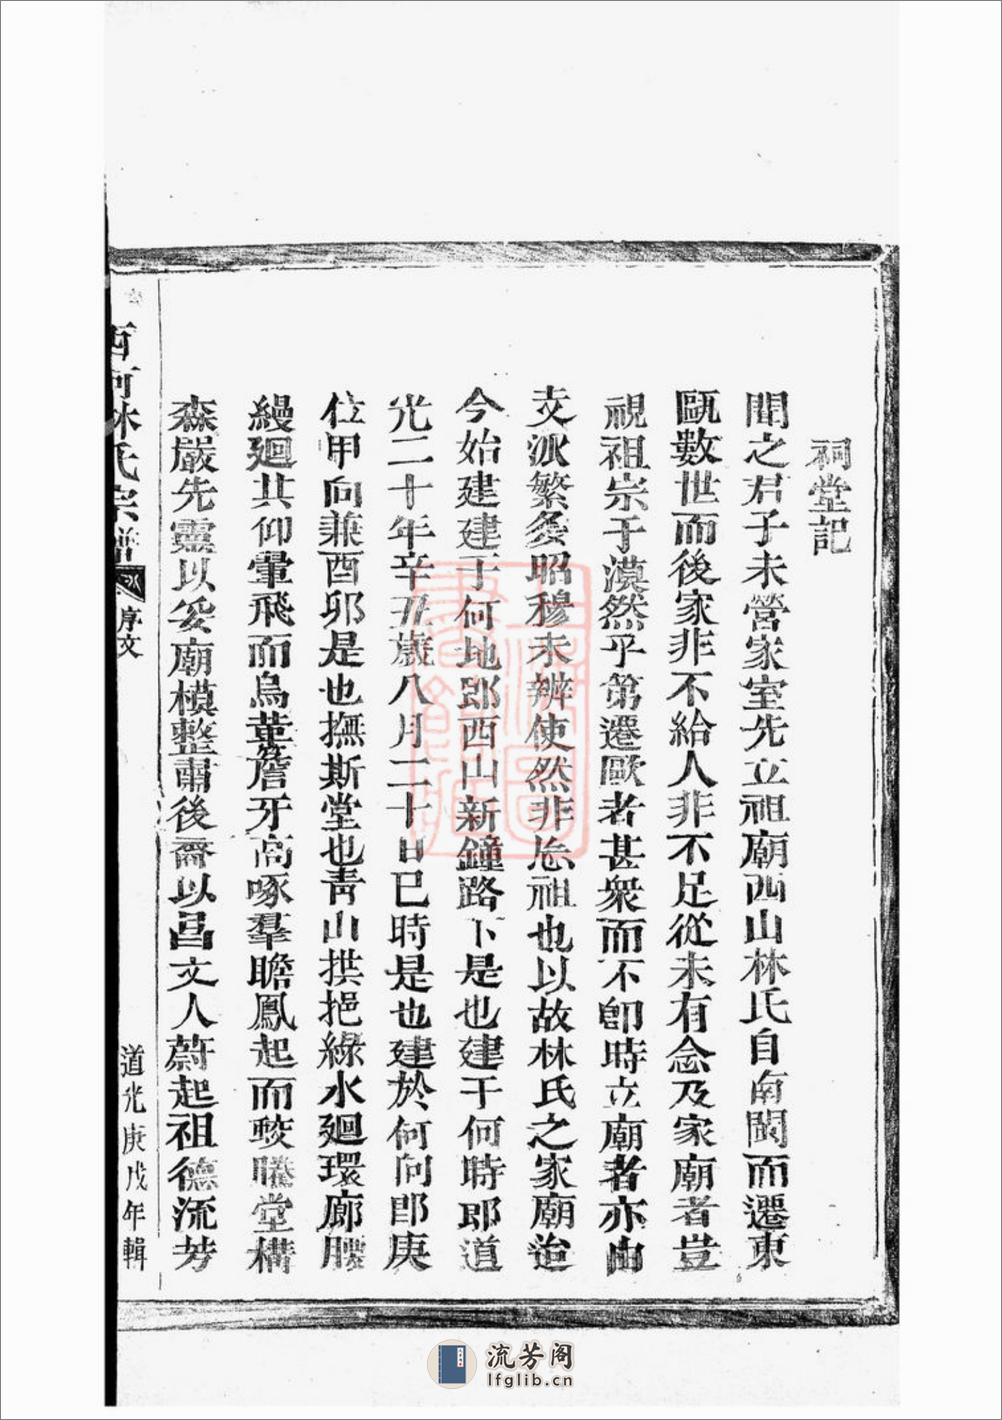 祠堂記
聞之君子未營家室先立祖廟西山林氏自南閩而遷東
甌數世而後家非不給人非不足從未有念及家廟者豈
視祖宗于漠然乎第遷歐者甚衆而不卽時立廟者亦由
支派繁多昭穆未辨使然非忘祖也以故林氏之家廟迨
今始建建于何地郎西山新鐘路下是也建于何時郎道
光二十年辛丑歲八月二十日巳時是也建於何向郎庚
位甲向兼酉卯是也撫斯堂也靑山拱挹綠水廻環廊腰
縵廻其仰翬飛而鳥革簷牙高啄羣瞻鳳起而蛟騰堂構
森嚴先靈以妥廟模整肅後裔以昌文人蔚起祖德流芳
西河林氏宗譜
序文
道光庚戌年輯
流芳阁
lfglib.cn